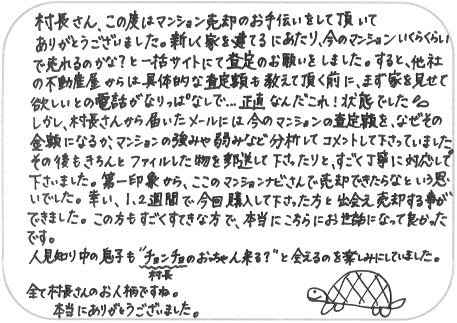 村長さん、この度はマンション売却のお手伝いをして頂いて
ありがとうございました。新しく家を建てるにあたり、今のマンションいくらくらい
で売れるのかな?と一括サイトにて査定のお願いをしました。すると、他社
の不動産屋からは具体的な査定額も教えて頂く前に、まず家を見せて
欲しいとの電話がなりっぱなしで…正直なんだこれ!状態でした
しかし、村長さんから届いたメールには今のマンションの査定額を、なぜその
金額になるか、マンションの強みや弱みなど分析してコメントして下さっていました。
その後もきちんとファイルした物を郵送して下さったりと、すごく丁寧に対応して
下さいました。第一印象から、ここのマンションナビさんで売却できたらなという思
いでした。幸い、1、2週間で今回購入して下さった方と出会え売却する事が
できました。この方もすごくすてきな方で、本当にこちらにお世話になって良かった
です。
人見知り中の息子も“チョンチョのおっちゃん来る?”と会えるのを楽しみにしていました。
村長
全て村長さんのお人柄ですね。
本当にありがとうございました。